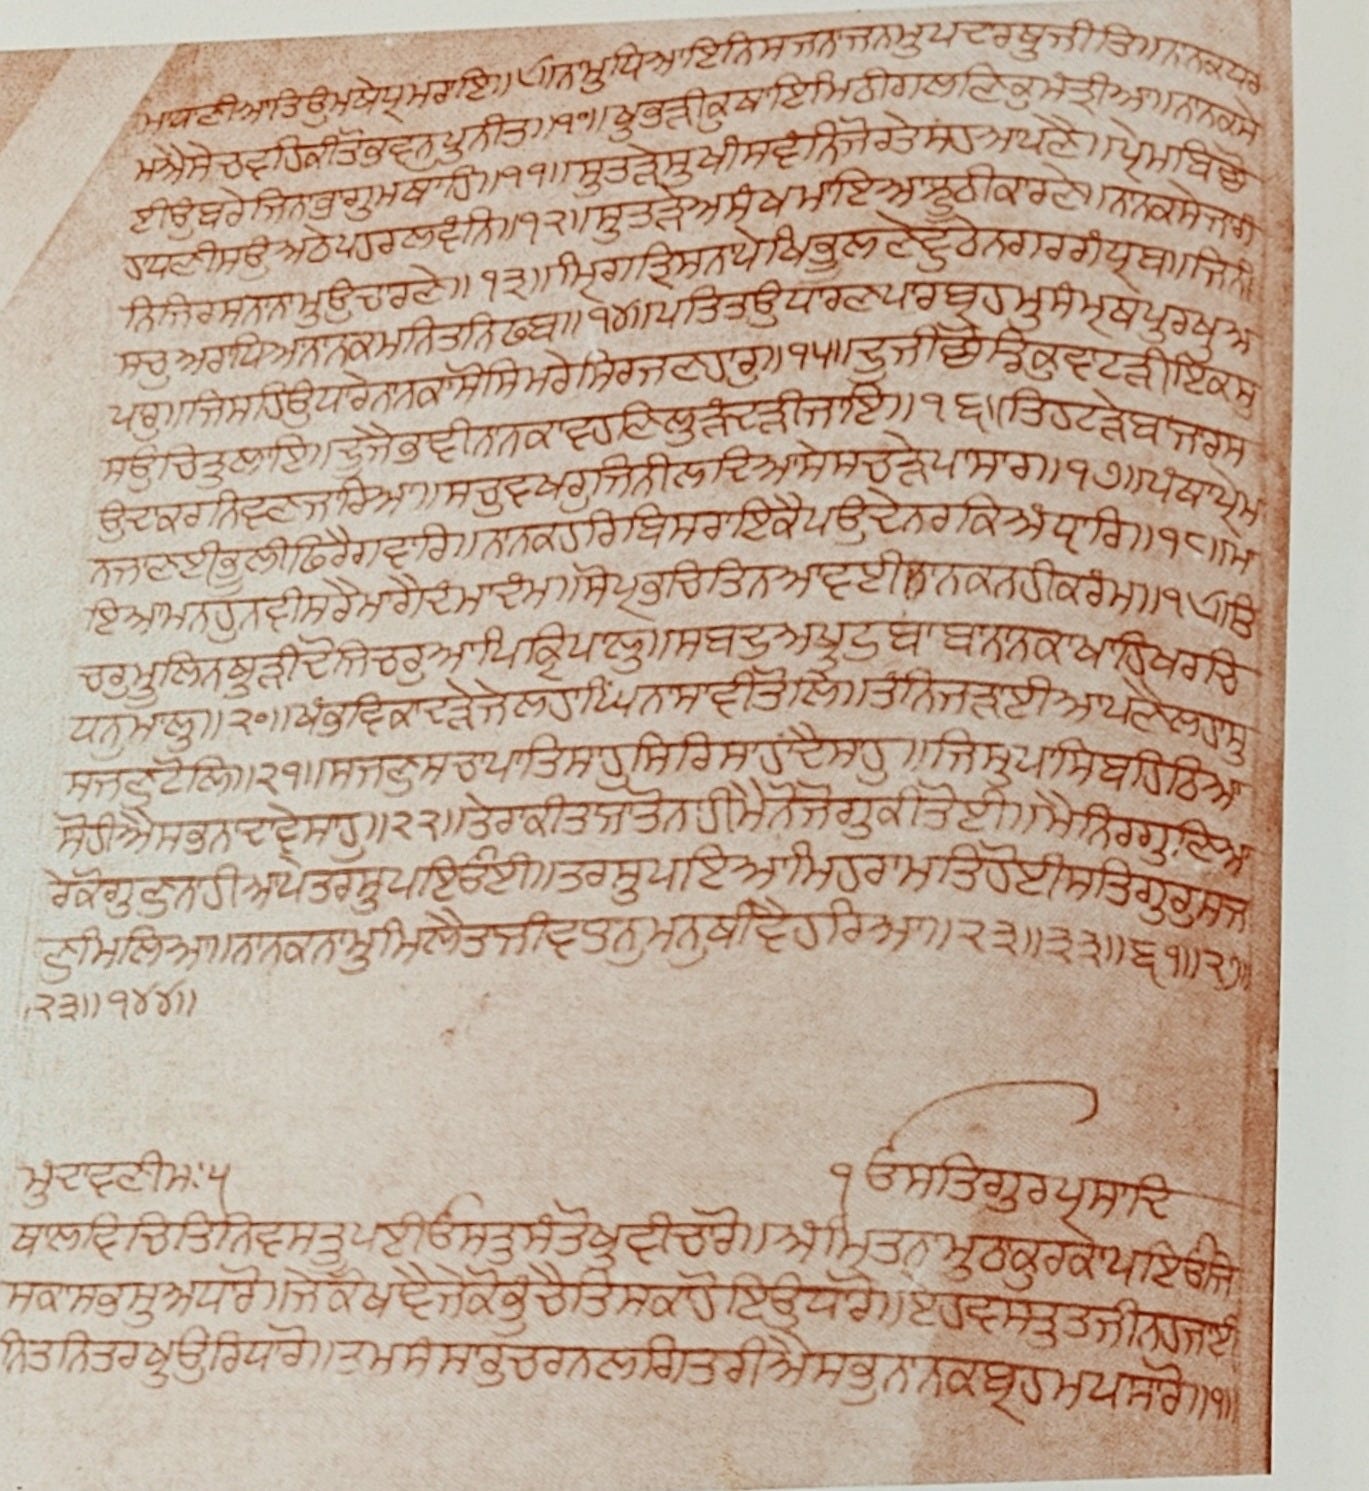 ਮਾਧਣੀਆਤਿਉਮਖੇਪ੍ਰਮਰਾਇ॥੯॥ਨਾਮੁਧਿਆਇਨਿਸਾਜਨਾਜਨਮੁਪਦਾਰਥੁਜੀਤਿ॥ਨਾਨਕਧਰ
ਮਐਸੇਚਵਹਿਕੀਤੋਭਵਨੁਪੁਨੀਤ॥੧੦॥ਖੁਭੜੀਕੁਥਾਇਮਿਠੀਗਲਣਿਕੁਮੰਤ੍ਰੀਆ॥ਨਾਨਕਸੇ
ਈਉਬਰੇਜਿਨਾਭਾਗੁਮਥਾਹਿ॥੧੧॥ਸੁਤੜੇਸੁਖੀਸਵੰਨਿਜੋਰਤੇਸਹਆਪਣੈ॥ਪ੍ਰੇਮਬਿਛੋ
ਹਾਧਣੀਸਉਅਠੇਪਹਰਲਵੰਨਿ॥੧੨॥ਸੁਤੜੇਅਸੰਖਮਾਇਆਝੂਠੀਕਾਰਣੇ॥ਨਾਨਕਸੇਜਾਗੰ
ਨਿਜਿਰਸਨਾਨਾਮੁਉਚਾਰਣੇ॥੧੩॥ਮ੍ਰਿਗਤ੍ਰਿਸਨਾਪੇਖਿਭੁਲਣੇਵੁਠੇਨਗਰਗੰਧ੍ਰਬ॥ਜਿਨੀ
ਸਚੁਅਰਾਧਿਆਨਾਨਕਮਨਿਤਨਿਫਬ॥੧੪॥ਪਤਿਤਉਧਾਰਣਪਾਰਬ੍ਰਹਮੁਸੰਮ੍ਰਥਪੁਰਖੁਅ
ਪਾਰੁ॥ਜਿਸਹਿਉਧਾਰੇਨਾਨਕਾਸੋਸਿਮਰੇਸਿਰਜਣਹਾਰੁ॥੧੫॥ਦੂਜੀਛੋਡਿਕੁਵਾਟੜੀਇਕਸੁ
ਸਉਚਿਤੁਲਾਇ॥ਦੂਜੈਭਾਵੀਨਾਨਕਾਵਹਣਿਲੁੜੰਦੜੀਜਾਇ॥੧੬॥ਤਿਹਟੜੇਬਾਜਾਰਸ
ਉਦਾਕਰਨਿਵਣਜਾਰਿਆ॥ਸਚੁਵਖਰੁਜਿਨੀਲਦਿਆਸੇਸਚੜੇਪਾਸਾਰ॥੧੭॥ਪੰਥਾਪ੍ਰੇਮ
ਨਜਾਣਈਭੂਲੀਫਿਰੈਗਵਾਰਿ॥ਨਾਨਕਹਰਿਬਿਸਰਾਇਕੈਪਉਦੇਨਰਕਿਅੰਧ੍ਯਾਰਿ॥੧੮॥ਮਾ
ਇਆਮਨਹੁਨਵੀਸਰੈਮਾਂਗੈਦੰਮਾਦੰਮ॥ਸੋਪ੍ਰਭੁਚਿਤਿਨਆਵਈਨਾਨਕਨਹੀਕਰੰਮ॥੧੯॥ਤਿ
ਚਰੁਮੂਲਿਨਥੁੜੀਦੋਜਿਚਰੁਆਪਿਕ੍ਰਿਪਾਲੁ॥ਸਬਦੁਅਖੁਟੁਬਾਬਾਨਾਨਕਾਖਾਹਿਖਰਚਿ
ਧਨੁਮਾਲੁ॥੨੦॥ਖੰਭਵਿਕਾਂਦੜੇਜੇਲਹਾਂਘਿੰਨਾਸਾਵੀਤੋਲਿ॥ਤੰਨਿਜੜਾਂਈਆਪਣੈਲਹਾਂਸੁ
ਸਜਣੁਟੋਲਿ॥੨੧॥ਸਜਣੁਸਚਾਪਾਤਿਸਾਹੁਸਿਰਿਸਾਹਾਂਦੈਸਾਹੁ॥ਜਿਸੁਪਾਸਿਬਹਿਠਿਆ
ਸੋਹੀਐਸਭਨਾਂਦਾਵੇਸਾਹੁ॥੨੨॥ਤੇਰਾਕੀਤਾਜਾਤੋਨਾਹੀਮੈਨੋਜੋਗੁਕੀਤੋਈ॥ਮੈਨਿਰਗੁਣਿਆ
ਰੇਕੋਗੁਣੁਨਾਹੀਆਪੇਤਰਸੁਪਇਓਈ॥ਤਰਸੁਪਾਇਆਮਿਹਰਾਮਤਿਹੋਈਸਤਿਗੁਰੁਸਜ
ਣੁਮਿਲਿਆ॥ਨਾਨਕਨਾਮੁਮਿਲੈਤਜੀਵਾਤਨੁਮਨੁਥੀਵੈਹਰਿਆ॥੨੩॥੩੩॥੬੧॥੨੭॥
੨੩॥੧੪੪॥
ਮੁੰਦਾਵਣੀਮਃ੫ ੧ਓਸਤਿਗੁਰਪ੍ਰਸਾਦਿ
ਥਾਲਵਿਚਿਤਿੰਨਿਵਸਤੂਪਈਓਸਤੁਸੰਤੋਖੁਵੀਚਾਰੋ॥ਅੰਮ੍ਰਿਤਨਾਮੁਠਾਕੁਰਕਾਪਇਓਜਿ
ਸਕਾਸਭਸੁਅਧਾਰੋ॥ਜੇਕੋਖਾਵੈਜੇਕੋਭੁੰਚੈਤਿਸਕਾਹੋਇਉਧਾਰੋ॥ਏਹਵਸਤੁਤਜੀਨਹਜਾਈ
ਨਿਤਨਿਤਰਖੁਉਰਿਧਾਰੋ॥ਤਮਸੰਸਾਰੁਚਰਨਲਗਿਤਰੀਐਸਭੁਨਾਨਕਬ੍ਰਹਮਪਸਾਰੋ॥੧॥